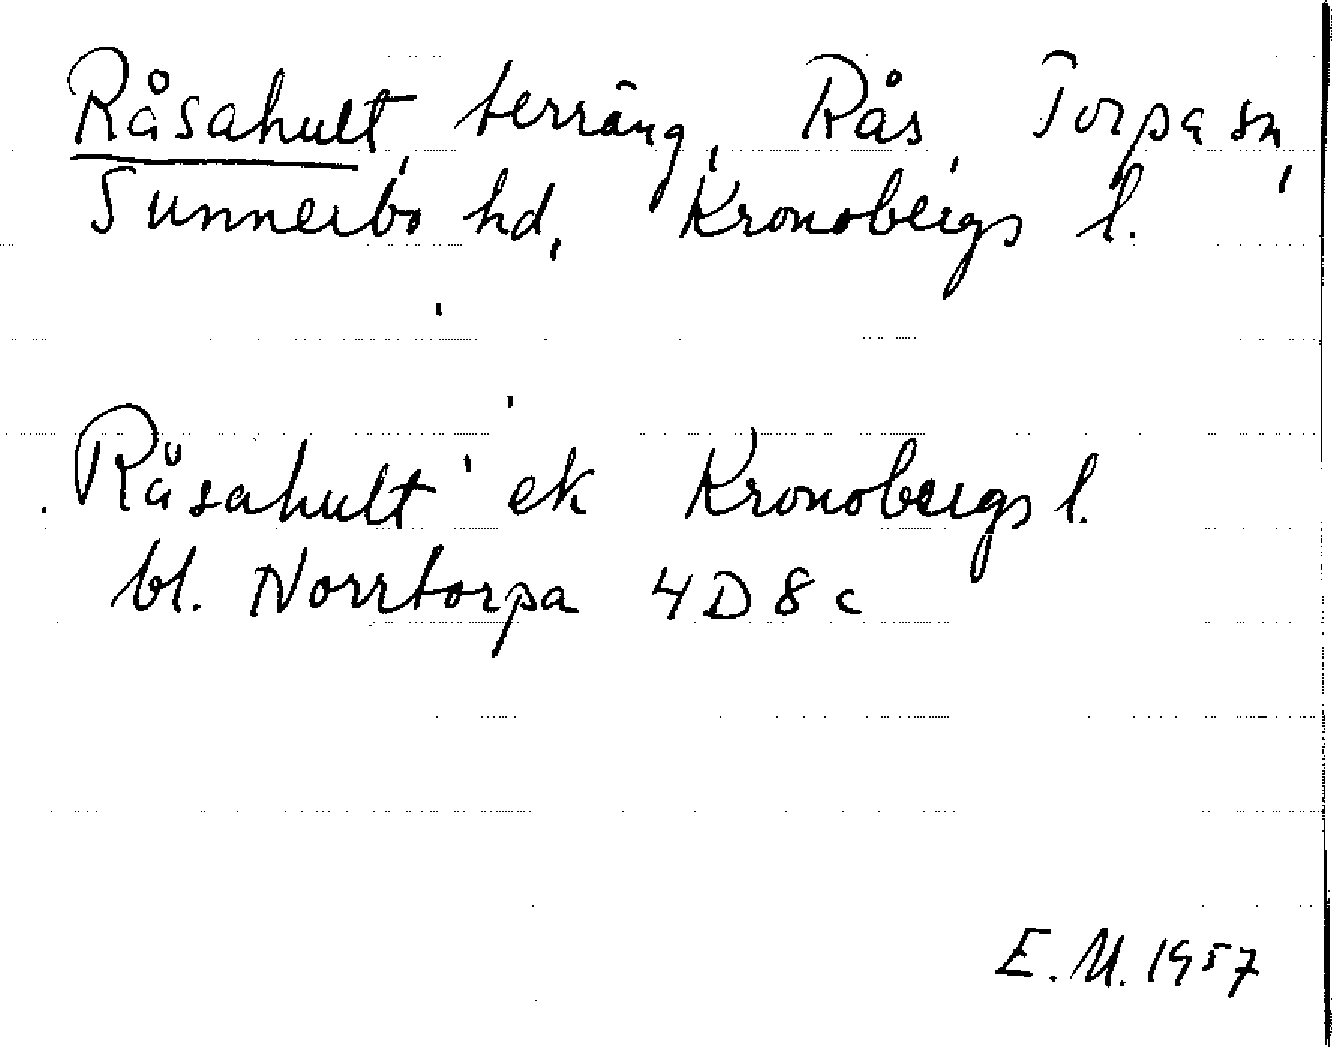 Råsahult, terräng, Rås, Torpa sn,
Sunnerbo hd, Kronobergs l.
Råsahult ek Kronobergs l.
bl. Norrtorpa 4D8c
E.M. 1957